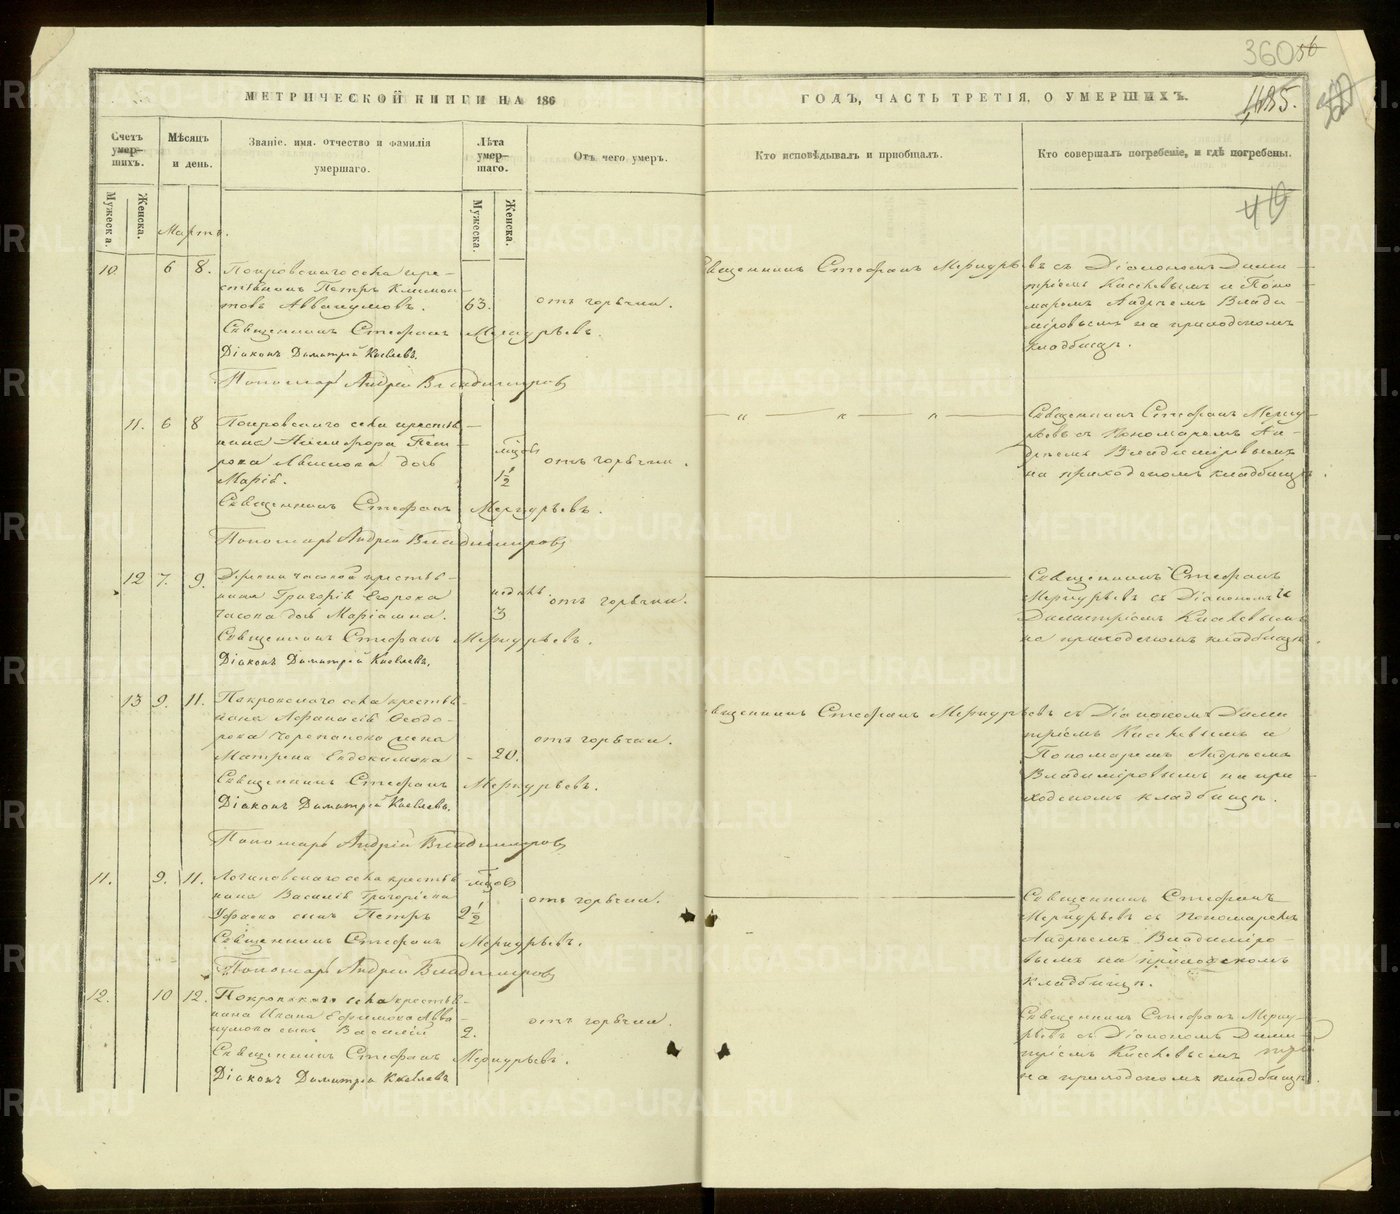 360 56
МЕТРИЧЕСКОЙ КНИГИ НА 186 ГОДЪ, ЧАСТЬ ТРЕТІЯ, О УМЕРШИХЪ.
1485.
Счетъ умер-шихъ.
Мужеска.
Женска.
Мѣсяцъ и день.
Званіе, имя, отчество и фамилія умершаго.
Лѣта умер-шаго.
Мужеска.
Женска.
Отъ чего умеръ.
Кто исповѣдывалъ и пріобщалъ.
Кто совершалъ погребеніе, и гдѣ погребены.
49
Мартъ.
10. 6 8. Покровскаго села кре-
стьянинъ Петръ Климон-
товъ Аввакумовъ. 63. отъ горячки.
Священникъ Стефанъ Меркурьевъ.
Діаконъ Димитрій Киселевъ.
Пономарь Андрей Владимировъ
Священникъ Стефанъ Меркурьевъ съ Діакономъ Дими-
тріемъ Киселевымъ и Поно-
маремъ Андреемъ Влади-
міровымъ на приходскомъ
кладбищѣ.
11. 6 8 Покровскаго села крестья-
нина Никифора Пет-
рова дочь
Марія. мѣсяц. 1 1/2 отъ горячки.
Священникъ Стефанъ Меркурьевъ.
Пономарь Андрей Владимировъ
Священникъ Стефанъ Мерку-
рьевъ съ Пономаремъ Ан-
дреемъ Владиміровымъ
на приходскомъ кладбищѣ.
12 7. 9. Деревни Часовой крестья-
нина Григорія Егорова
Часова дочь Маріамна. недѣль 3 отъ горячки.
Священникъ Стефанъ Меркурьевъ.
Діаконъ Димитрій Киселевъ.
Священникъ Стефанъ
Меркурьевъ съ Діакономъ
Димитріемъ Киселевымъ
на приходскомъ кладбищѣ.
13 9. 11. Покровскаго села крестья-
нина Афанасія Ѳеодо-
рова Черепанова жена
Матрена Евдокимова 20. отъ горячки.
Священникъ Стефанъ Меркурьевъ.
Діаконъ Димитрій Киселевъ.
Пономарь Андрей Владимировъ
Священникъ Стефанъ Меркурьевъ съ Діакономъ Дими
тріемъ Киселевымъ и
Пономаремъ Андреемъ
Владиміровымъ на при-
ходскомъ кладбищѣ.
11. 9. 11. Логиновскаго села крестья
нина Василія Григоріева
сынъ Петръ мѣсяцовъ 2 1/2 отъ горячки.
Священникъ Стефанъ Меркурьевъ.
Пономарь Андрей Владимировъ
Священникъ Стефанъ
Меркурьевъ съ Пономаремъ
Андреемъ Владиміро-
вымъ на приходскомъ
кладбищѣ.
12. 10 12. Покровскаго села крестья-
нина Ивана Ефимова Авва-
кумова сынъ Василій 2. отъ горячки.
Священникъ Стефанъ Меркурьевъ.
Діаконъ Димитрій Киселевъ
Священникъ Стефанъ Мерку-
рьевъ съ Діакономъ Дими-
тріемъ Киселевымъ
на приходскомъ кладбищѣ.
METRIKI.GASO-URAL.RU